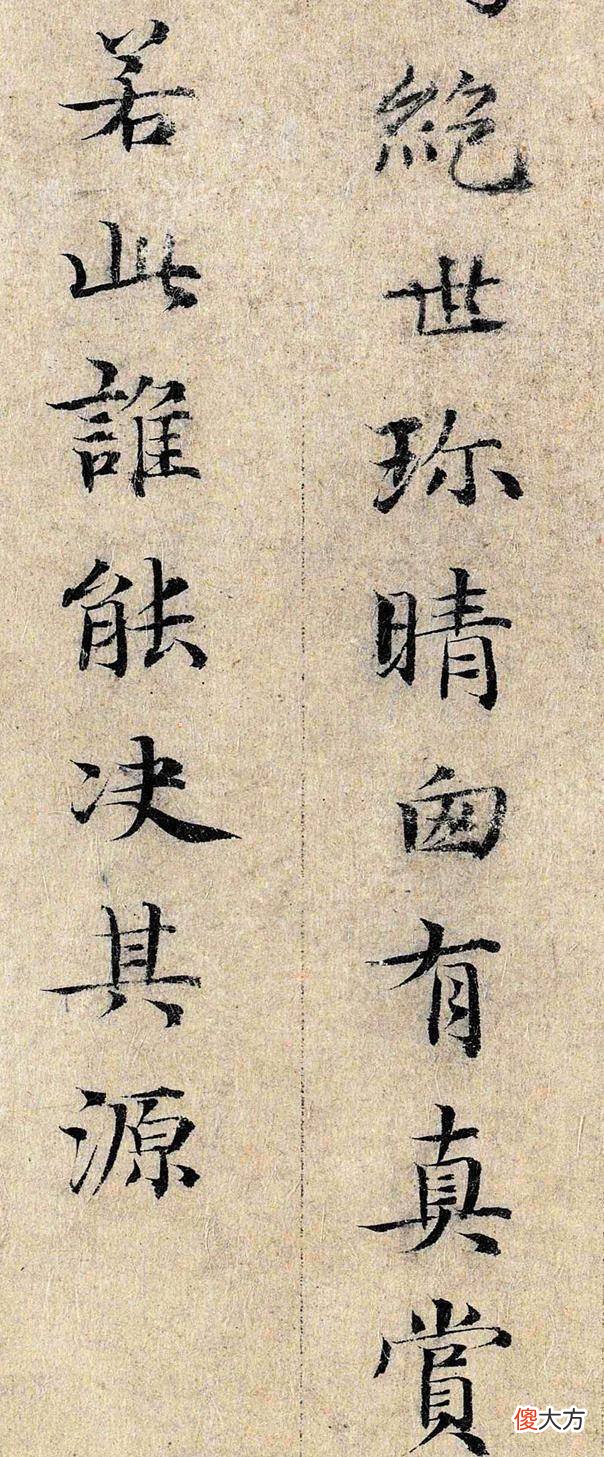 絕世珎晴窗有真賞
若此誰能决其源
傻大方